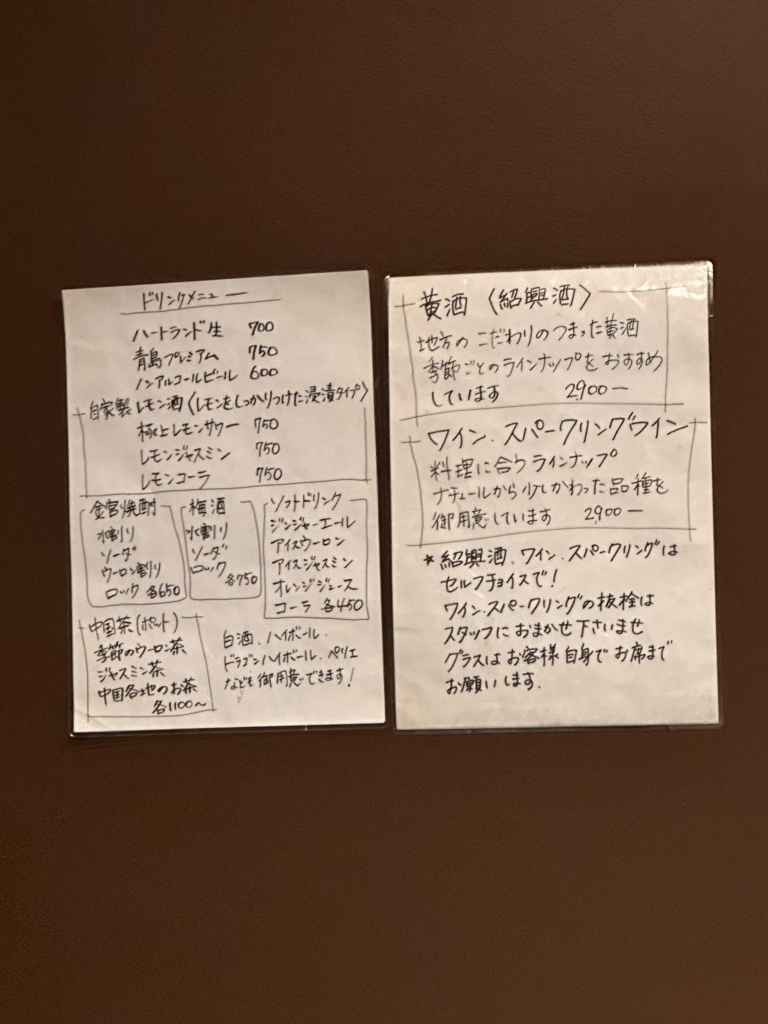 ドリンクメニュー
ハートランド生 700
青島プレミアム 750
ノンアルコールビール 600
自家製レモン酒〈レモンをしっかりつけた浸漬タイプ〉
極上レモンサワー 750
レモンジャスミン 750
レモンコーラ 750
金宮焼酎
水割り
ソーダ
ウーロン割り
ロック 各650
梅酒
水割り
ソーダ
ロック
各750
ソフトドリンク
ジンジャーエール
アイスウーロン
アイスジャスミン
オレンジジュース
コーラ 各450
中国茶(ポット)
季節のウーロン茶
ジャスミン茶
中国各地のお茶
各1100〜
白酒、ハイボール、
ドラゴンハイボール、ペリエ
なども御用意できます!
黄酒〈紹興酒〉
地方のこだわりのつまった黄酒
季節ごとのラインナップをおすすめ
しています 2,900ー
ワイン、スパークリングワイン
料理に合うラインナップ
ナチュールから少しかわった品種を
御用意しています 2,900ー
★紹興酒、ワイン、スパークリングは
セルフチョイスで!
ワイン、スパークリングの抜栓は
スタッフにおまかせ下さいませ
グラスはお客様自身でお席まで
お願いします。